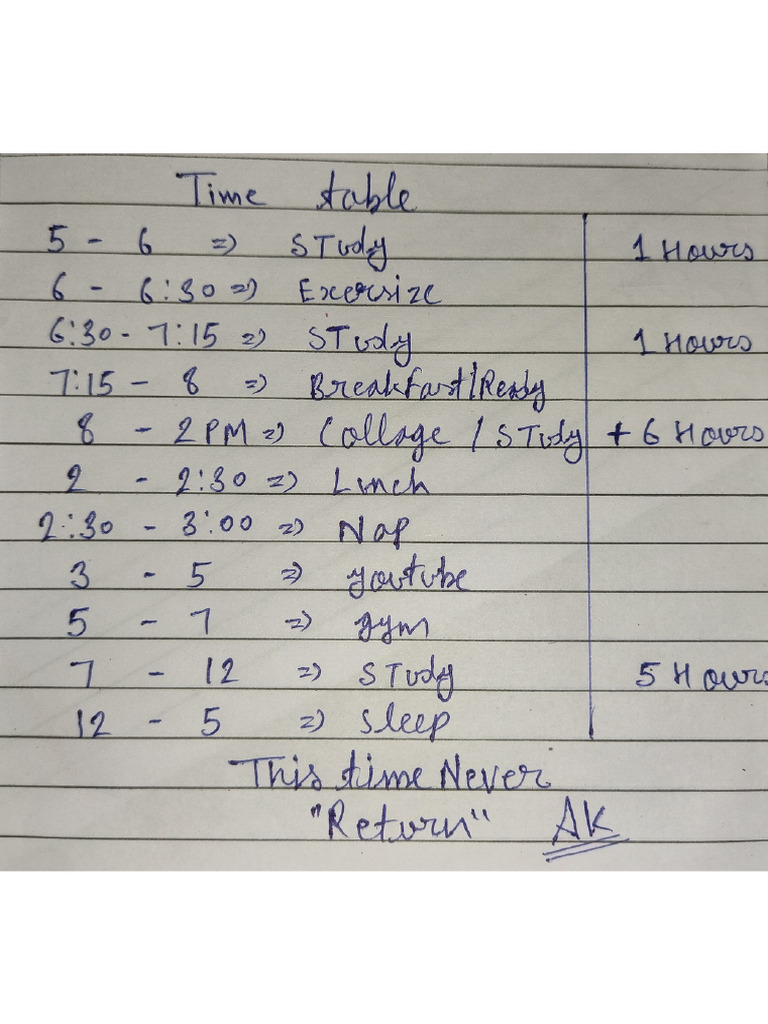 Time table
5 - 6 => STudy 1 Hours
6 - 6:30 => Exersize
6:30 - 7:15 => STudy 1 Hours
7:15 - 8 => Breakfast/Ready
8 - 2 PM => Collage / STudy + 6 Hours
2 - 2:30 => Lunch
2:30 - 3:00 => Nap
3 - 5 => youtube
5 - 7 => gym
7 - 12 => STudy 5 Hours
12 - 5 => Sleep
This time Never
"Return" AK